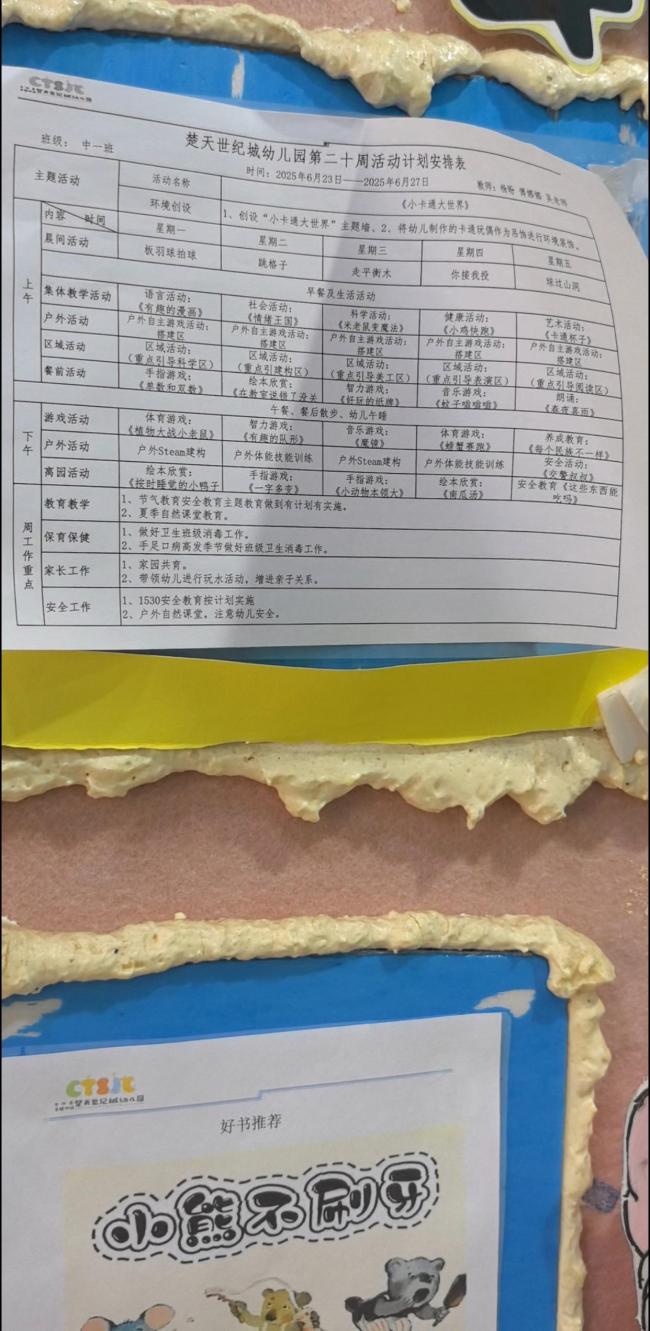 CTSJC
楚天世纪城幼儿园第二十周活动计划安排表
班级： 中一班
时间：2025年6月23日——2025年6月27日
教师：杨盼
主题活动 活动名称 《小卡通大世界》
环境创设 1、创设“小卡通大世界”主题墙、2、将幼儿制作的卡通玩偶作为吊饰进行环境装饰。
内容 时间 星期一 星期二 星期三 星期四 星期五
上午
晨间活动 板羽球拍球 跳格子 走平衡木 你接我投 球过山洞
早餐及生活活动
集体教学活动 语言活动：《有趣的漫画》 社会活动：《情绪王国》 科学活动：《米老鼠变魔法》 健康活动：《小鸡快跑》 艺术活动：《卡通杯子》
户外活动 户外自主游戏活动：搭建区 户外自主游戏活动：搭建区 户外自主游戏活动：搭建区 户外自主游戏活动：搭建区 户外自主游戏活动：搭建区
区域活动 区域活动：（重点引导科学区） 区域活动：（重点引建构区） 区域活动：（重点引导美工区） 区域活动：（重点引导表演区） 区域活动：（重点引导阅读区）
餐前活动 手指游戏：《单数和双数》 绘本欣赏：《在教室说错了没关 智力游戏：《好玩的纸牌》 音乐游戏：《蚊子嗡嗡嗡》 朗诵：《春夜喜雨》
午餐、餐后散步、幼儿午睡
下午
游戏活动 体育游戏：《植物大战小老鼠》 智力游戏：《有趣的队形》 音乐游戏：《魔镜》 体育游戏：《螃蟹赛跑》 养成教育：《每个民族不一样》
户外活动 户外Steam建构 户外体能技能训练 户外Steam建构 户外体能技能训练 安全活动：《交警叔叔》
离园活动 绘本欣赏：《按时睡觉的小鸭子 手指游戏：《一字多变》 手指游戏：《小动物本领大》 绘本欣赏：《南瓜汤》 安全教育《这些东西能吃吗》
周工作重点
教育教学 1、节气教育安全教育主题教育做到有计划有实施。
2、夏季自然课堂教育。
保育保健 1、做好卫生班级消毒工作。
2、手足口病高发季节做好班级卫生消毒工作。
家长工作 1、家园共育。
2、带领幼儿进行玩水活动，增进亲子关系。
安全工作 1、1530安全教育按计划实施
2、户外自然课堂，注意幼儿安全。
CTSJC
楚天世纪城幼儿园
好书推荐
小熊不刷牙